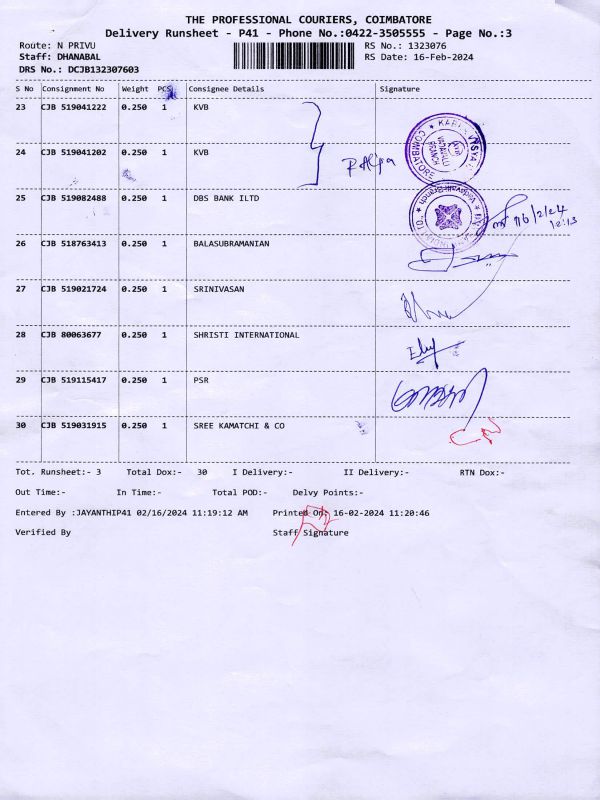 THE PROFESSIONAL COURIERS, COIMBATORE
Delivery Runsheet - P41 - Phone No.:0422-3505555 - Page No.:3
Route: N PRIVU
RS No.: 1323076
Staff: DHANABAL
RS Date: 16-Feb-2024
DRS No.: DCJB132307603
S No Consignment No Weight PCS Consignee Details Signature
23 CJB 519041222 0.250 1 KVB
24 CJB 519041202 0.250 1 KVB
COIMBATORE
BRANCH
25 CJB 519082488 0.250 1 DBS BANK ILTD
16/2/24
12:13
26 CJB 518763413 0.250 1 BALASUBRAMANIAN
27 CJB 519021724 0.250 1 SRINIVASAN
28 CJB 80063677 0.250 1 SHRISTI INTERNATIONAL
29 CJB 519115417 0.250 1 PSR
30 CJB 519031915 0.250 1 SREE KAMATCHI & CO
Tot. Runsheet:- 3 Total Dox:- 30 I Delivery:- II Delivery:- RTN Dox:-
Out Time:- In Time:- Total POD:- Delvy Points:-
Entered By :JAYANTHIP41 02/16/2024 11:19:12 AM Printed On: 16-02-2024 11:20:46
Verified By Staff Signature